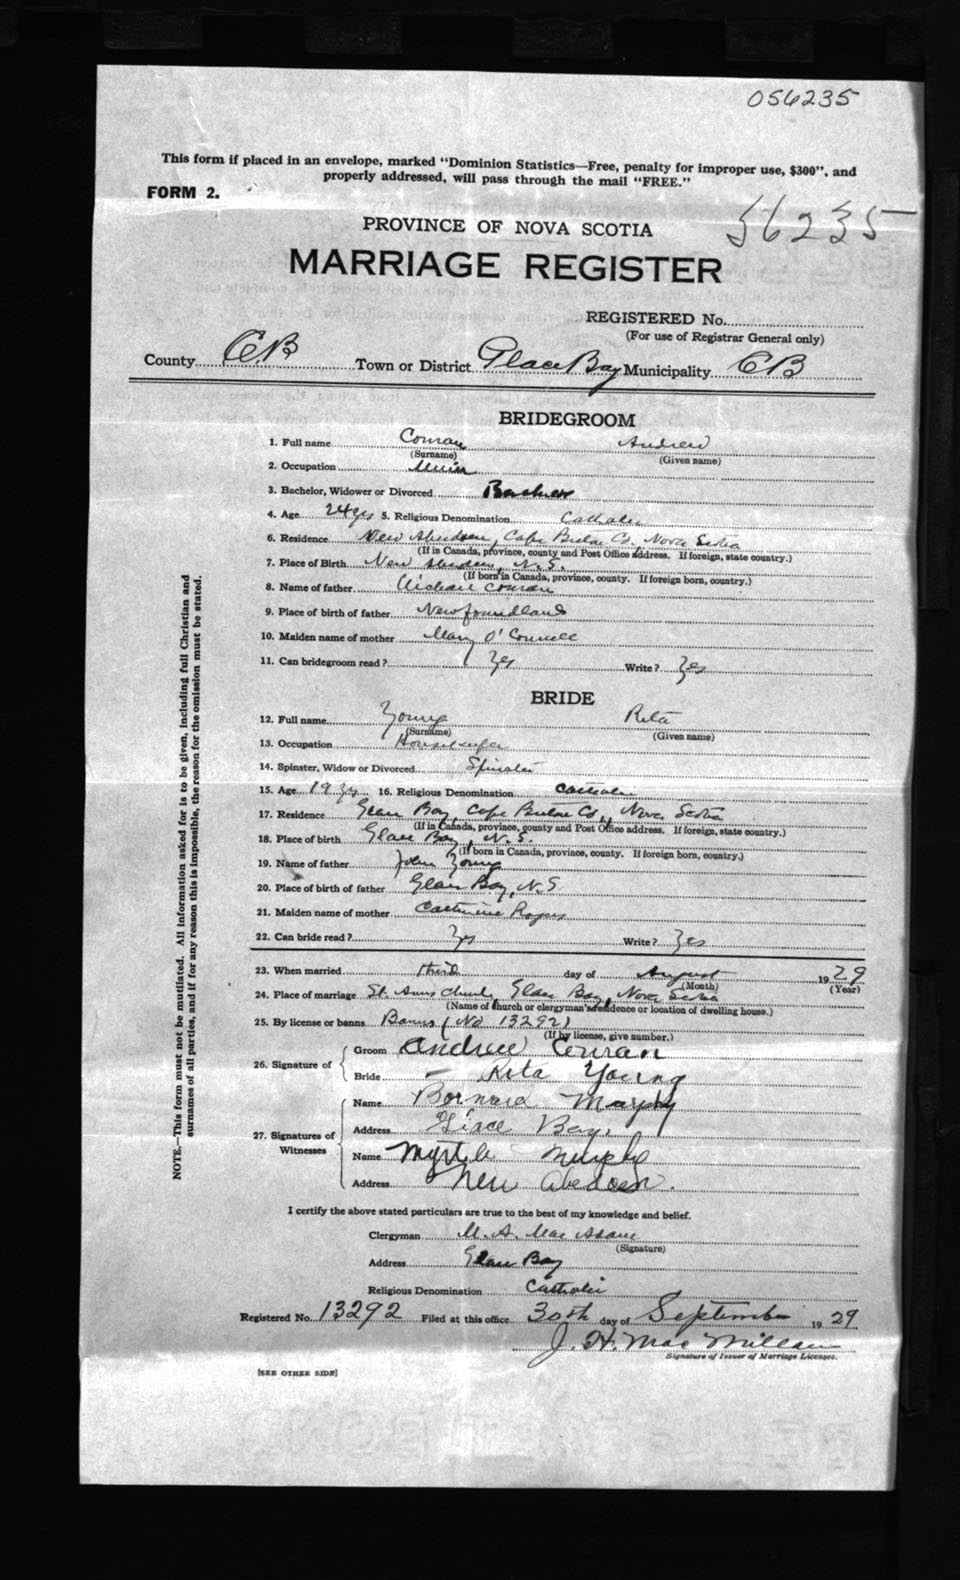 056235
This form if placed in an envelope, marked "Dominion Statistics—Free, penalty for improper use, $300", and
properly addressed, will pass through the mail "FREE."
FORM 2.
56235
PROVINCE OF NOVA SCOTIA
MARRIAGE REGISTER
REGISTERED No.
(For use of Registrar General only)
County C.B Town or District Glace Bay Municipality CB
BRIDEGROOM
1. Full name Conran Andrew
(Surname) (Given name)
2. Occupation Miner
3. Bachelor, Widower or Divorced Bachelor
4. Age 24 yrs 5. Religious Denomination Catholic
6. Residence New Aberdeen, Cape Breton Co., Nova Scotia
(If in Canada, province, county and Post Office address. If foreign, state country.)
7. Place of Birth New Aberdeen, N.S.
(If born in Canada, province, county. If foreign born, country.)
8. Name of father Michael Conran
9. Place of birth of father Newfoundland
10. Maiden name of mother Mary O'Connell
11. Can bridegroom read? Yes Write? Yes
BRIDE
12. Full name Young Rita
(Surname) (Given name)
13. Occupation Housekeeper
14. Spinster, Widow or Divorced Spinster
15. Age 19 yrs 16. Religious Denomination Catholic
17. Residence Glace Bay, Cape Breton Co., Nova Scotia
(If in Canada, province, county and Post Office address. If foreign, state country.)
18. Place of birth Glace Bay, N.S.
(If born in Canada, province, county. If foreign born, country.)
19. Name of father John Young
20. Place of birth of father Glace Bay, N.S
21. Maiden name of mother Catherine Rogers
22. Can bride read? Yes Write? Yes
23. When married third day of August 1929
(Month) (Year)
24. Place of marriage St. Anns Church, Glace Bay, Nova Scotia
(Name of church or clergyman's residence or location of dwelling house.)
25. By license or banns Banns (No 13292)
(If by license, give number.)
26. Signature of Groom Andrew Conran
Bride Rita Young
27. Signatures of Witnesses Name Bernard Murphy
Address Glace Bay.
Name Myrtle Murphy
Address New Aberdeen.
I certify the above stated particulars are true to the best of my knowledge and belief.
Clergyman M. A. Mac Adam
(Signature)
Address Glace Bay
Religious Denomination Catholic
Registered No. 13292 Filed at this office 30th day of September 1929
J. H. Mac Millan
Signature of Issuer of Marriage Licenses.
[SEE OTHER SIDE]
NOTE.—This form must not be mutilated. All information asked for is to be given, including full Christian and
surnames of all parties, and if for any reason this is impossible, the reason for the omission must be stated.